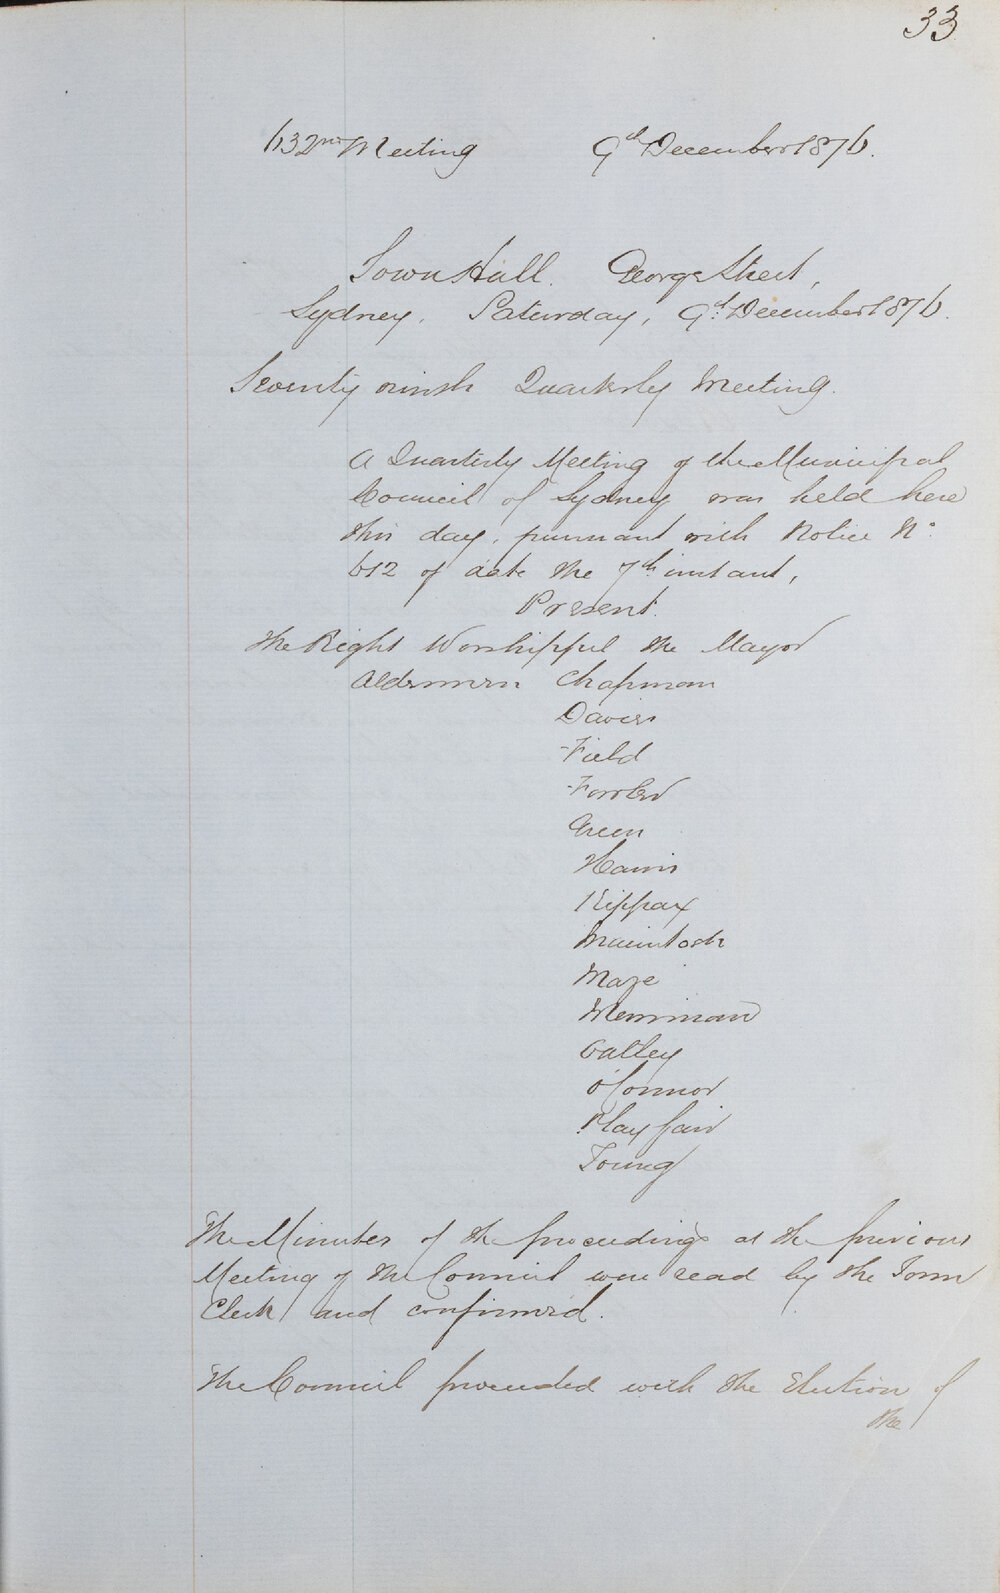 33
632nd Meeting 9th December 1876.
Town Hall. George Street,
Sydney. Saturday, 9th December 1876.
Seventy ninth Quarterly Meeting.
A Quarterly Meeting of the Municipal
Council of Sydney was held here
this day, pursuant with Notice No.
612 of date the 7th instant,
Present.
The Right Worshipful the Mayor
Aldermen Chapman
Davies
Field
Fowler
Green
Harris
Kippax
Macintosh
Maze
Merriman
Oatley
O'Connor
Playfair
Young
The Minutes of the proceedings at the previous
Meeting of the Council were read by the Town
Clerk and confirmed.
The Council proceeded with the Election of
the